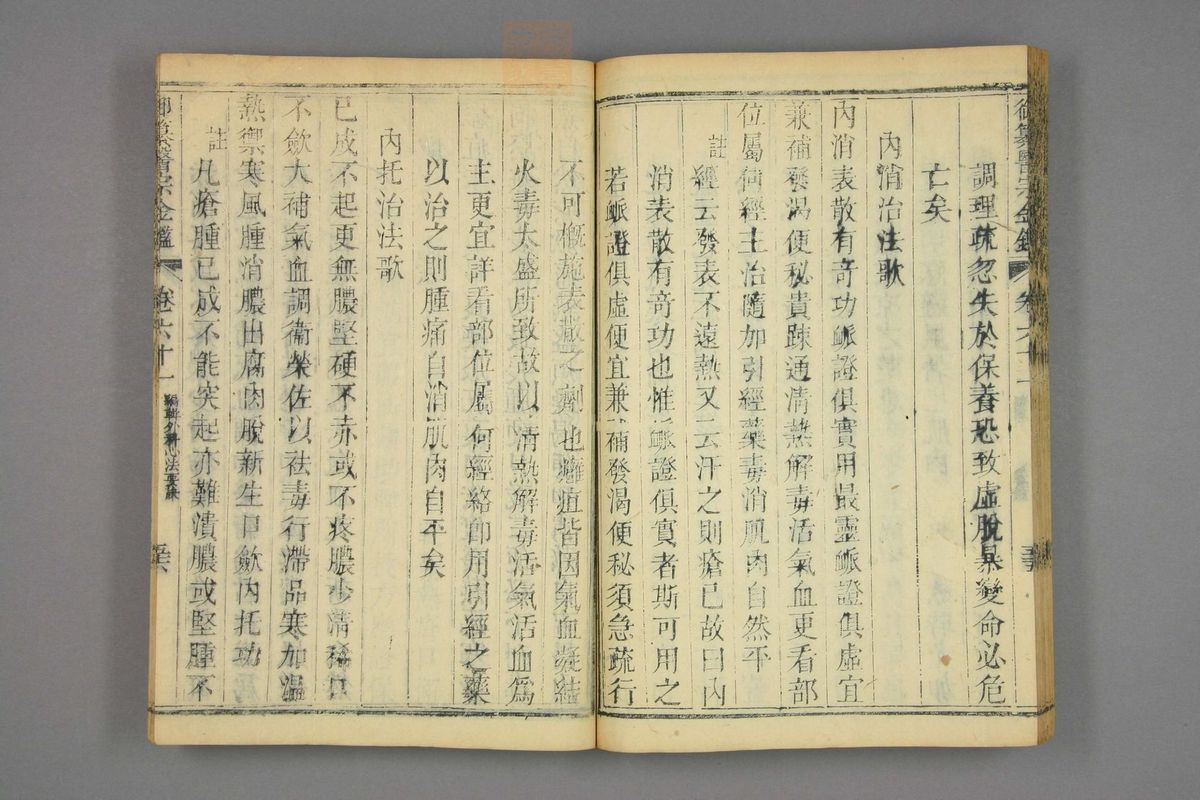 御纂醫宗金鑑 卷六十一
調理疏忽失於保養恐致虛脫暴變命必危
亡矣
內消治法歌
內消表散有奇功脈證俱實用最靈脈證俱虛宜
兼補發渴便秘貴踈通清熱解毒活氣血更看部
位屬何經主治隨加引經藥毒消肌肉自然平
註
經云發表不遠熱又云汗之則瘡已故曰內
消表散有奇功也惟脈證俱實者斯可用之
若脈證俱虛便宜兼補發渴便秘須急疏行
不可槪施表散之劑也癰疽皆因氣血凝結
火毒太盛所致故以清熱解毒活氣活血爲
主更宜詳看部位屬何經絡卽用引經之藥
以治之則腫痛自消肌肉自平矣
內托治法歌
已成不起更無膿堅硬不赤或不疼膿少清稀口
不斂大補氣血調衛榮佐以祛毒行滯品寒加溫
熱禦寒風腫消膿出腐肉脫新生口斂內托功
註
凡瘡腫已成不能突起亦難潰膿或堅腫不
御纂醫宗金鑑 卷六十一 編輯外科心法要訣